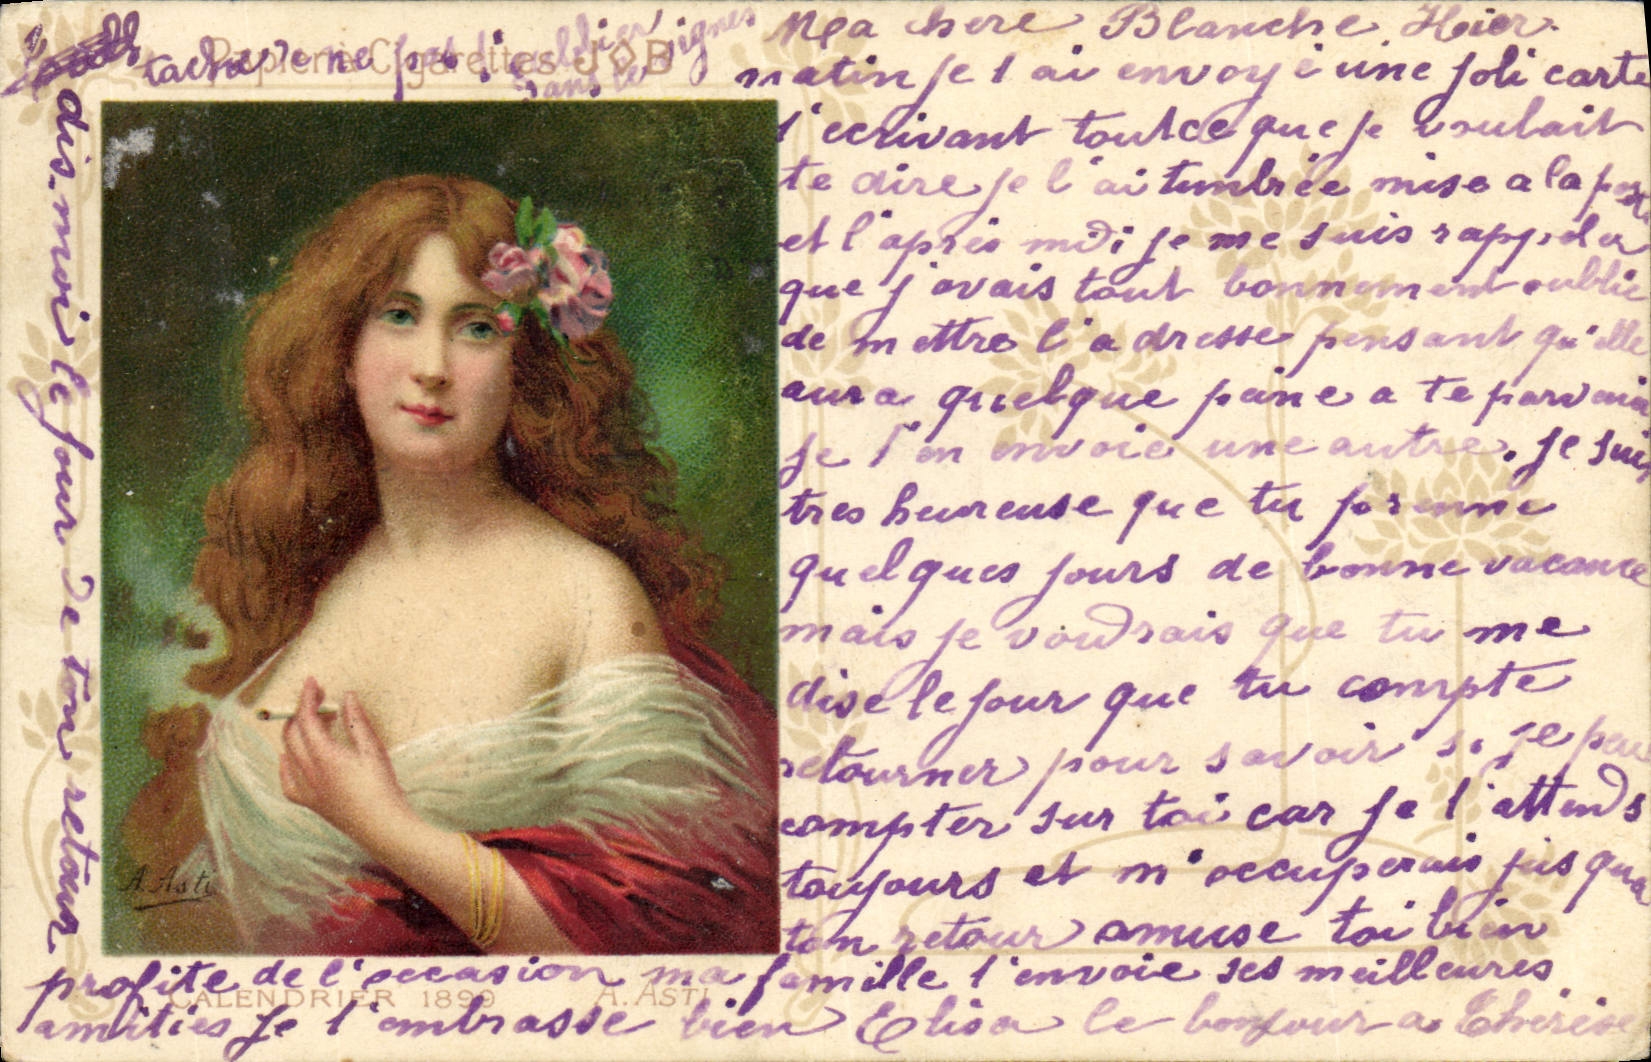 Papier à Cigarettes JOB
Ma chere Blanche. Hier
matin je t'ai envoyé une joli carte
t'ecrivant toutce que je voulait
te dire je l'ai timbrée mise a la
et l'apres midi je me suis rappeler
que j'avais tout bonnement oublié
de mettre l'adresse pensant qu'elle
aura quelque peine a te parvenir
je t'en envoie une autre. je suis
tres heureuse que tu prenne
quelques jours de bonne vacance
mais je voudrais que tu me
dise le jour que tu compte
retourner pour savoir si je peu
compter sur toi car je t'attends
toujours et m'occuperais jus qua
ton retour amuse toi bien
profite de l'occasion ma famille t'envoie ses meilleures
amities je t'embrasse bien Elisa le bonjour a Thérèse
tache de ne pas l'oublier
dans les lignes
dis-moi le jour de ton retour
A. Asti
CALENDRIER 1899 A. ASTI